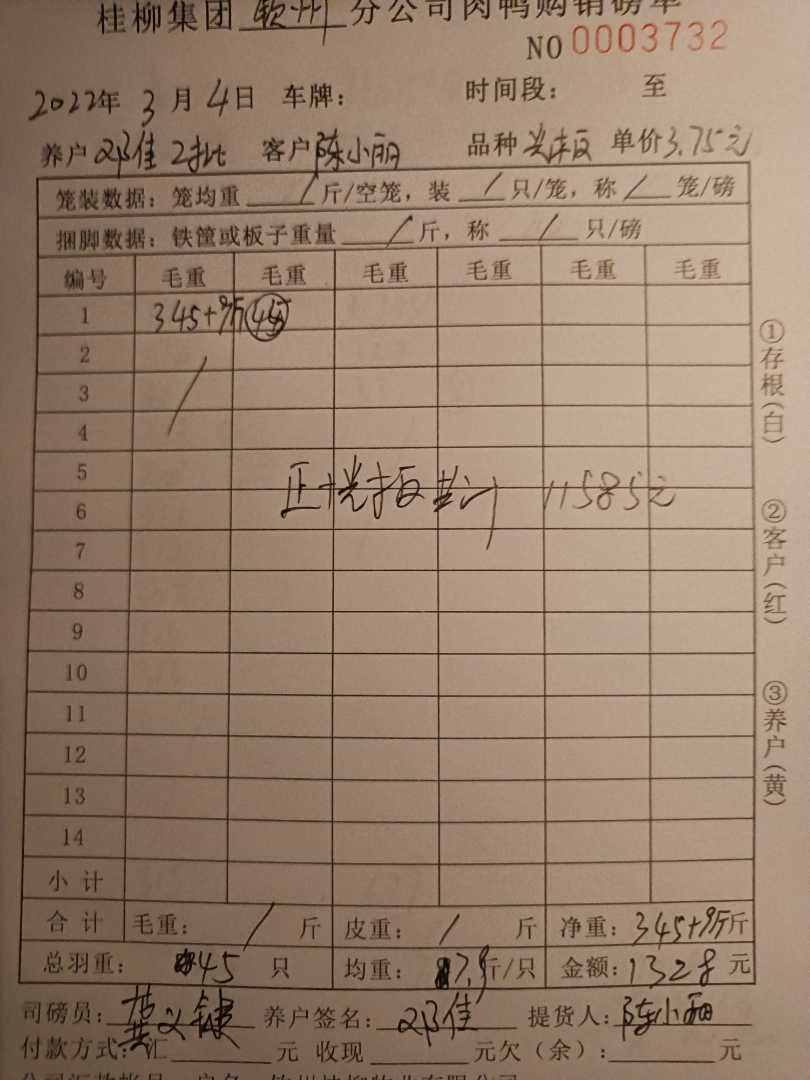 桂柳集团 钦州 分公司肉鸭购销磅单
NO 0003732
2022年 3月 4日 车牌: 时间段: 至
养户 邓佳 2批 客户 陈小丽 品种 光板 单价 3.75元
笼装数据: 笼均重 / 斤/空笼, 装 / 只/笼, 称 / 笼/磅
捆脚数据: 铁筐或板子重量 / 斤, 称 / 只/磅
编号 毛重 毛重 毛重 毛重 毛重 毛重
1 345+9斤
2
3 /
4
5
正 光板 共计 11585元
6
7
8
9
10
11
12
13
14
小计
合计 毛重: / 斤 皮重: / 斤 净重: 345+9斤斤
总羽重: 45 只 均重: 7.9斤/只 金额: 1328元
司磅员: 养户签名: 邓佳 提货人: 陈小丽
付款方式: 汇 元 收现 元欠(余): 元
①存根(白)
②客户(红)
③养户(黄)